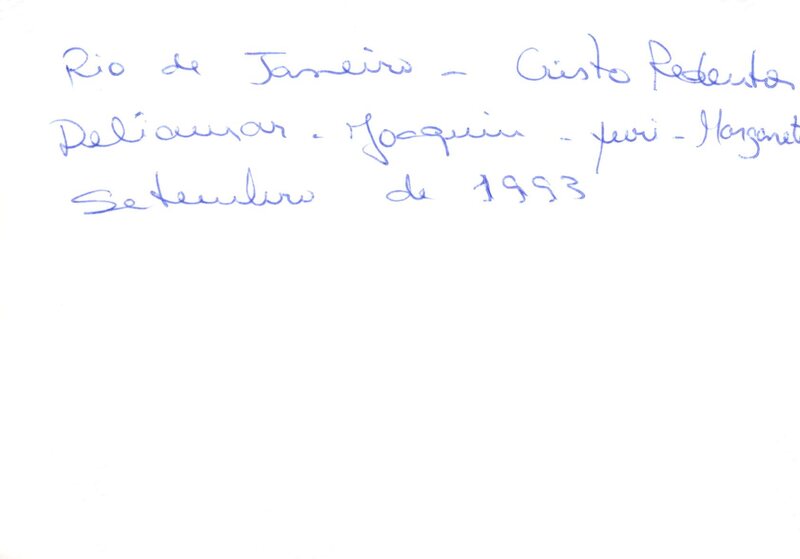 Rio de Janeiro - Cristo Redentor
Deliamar - Joaquin - Yuri - Margaret
Setembro de 1993